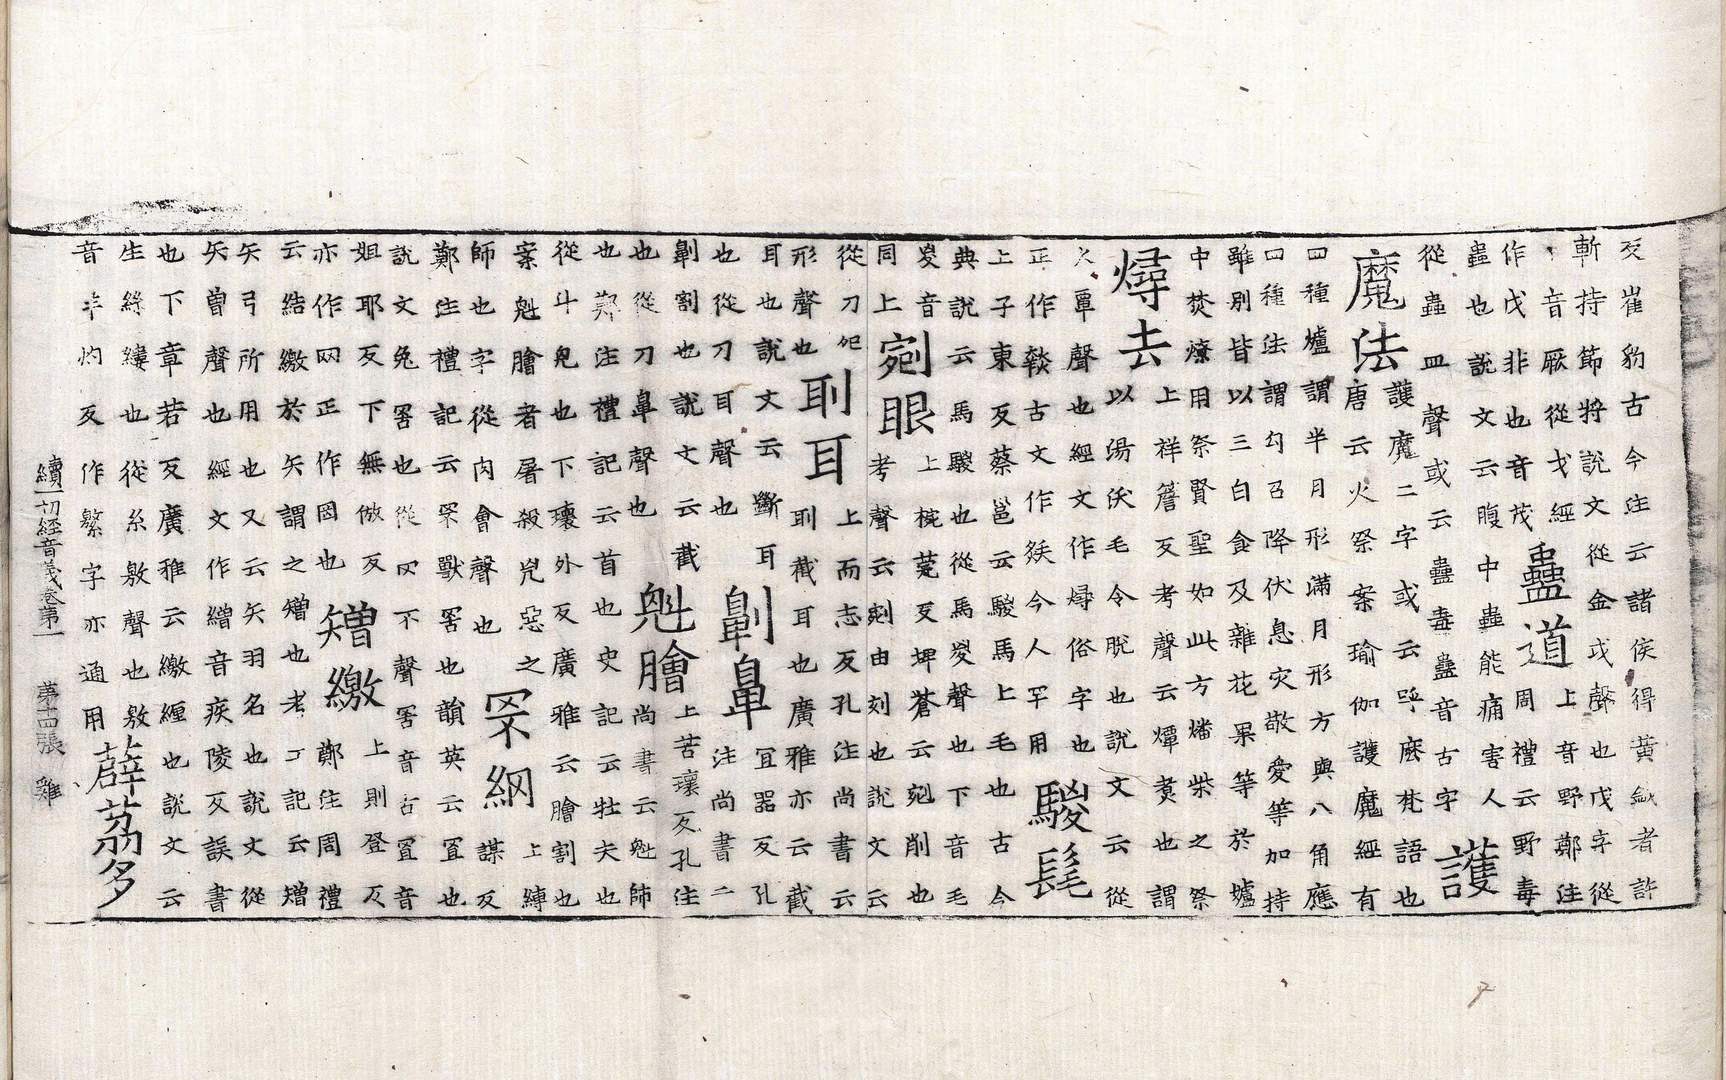 反崔豹古今注云諸侯得黃鉞者許
斬持節將說文從金戉聲也戊字從
音厥從戈經
作戊非也音茂
蠱道
上音野鄭注
周禮云野毒
蟲也說文云腹中蟲能痛害人
從蟲皿聲或云蠱毒蠱音古字
護
魔法
護魔二字或云呼麽梵語也
唐云火祭案瑜伽護魔經有
四種壚謂半月形滿月形方與八角應
四種法謂勾召降伏息灾敬愛等加持
雖別皆以三白食及雜花果等於壚
中焚燎用祭賢聖如此方燔柴之祭
燖去
上祥簷反考聲云燂煑也謂
以湯沃毛令脫也說文云從
火覃聲也經文作燖俗字也
正作㷣古文作㷋今人罕用
騣髦
上子東反蔡邕云騣馬上毛也古今
典說云馬騣也從馬㚇聲也下音毛
㚇音
同上
剜眼
上椀莧反埤蒼云剜削也
考聲云剜由刻也說文云
從刀夗
形聲也
刵耳
上而志反孔注尚書云
刵截耳也廣雅亦云截
耳也說文云斷耳
也從刀耳聲也
劓鼻
冝器反孔
注尚書云
劓割也說文云截
也從刀鼻聲也
魁膾
上苦瓌反孔注
尚書云魁師
也鄭注禮記云首也史記云壯夫也
從斗鬼也下瓌外反廣雅云膾割也
案魁膾者屠殺兇惡之
師也字從肉會聲也
罘網
上縛
謀反
鄭注禮記云罘獸罟也韻英云罝也
說文兔罟也從罒不聲罟音古罝音
姐耶反下無倣反
亦作网正作罔也
矰繳
上則登反
鄭注周禮
云結繳於矢謂之矰也考工記云矰
矢弓所用也又云矢羽名也說文從
矢曾聲也經文作繒音疾陵反誤書
也下章若反廣雅云繳纏也說文云
生絲縷也從糸敫聲也敫
音羊灼反作繁字亦通用
薜荔多
續一切經音義卷第一 第四張 雞